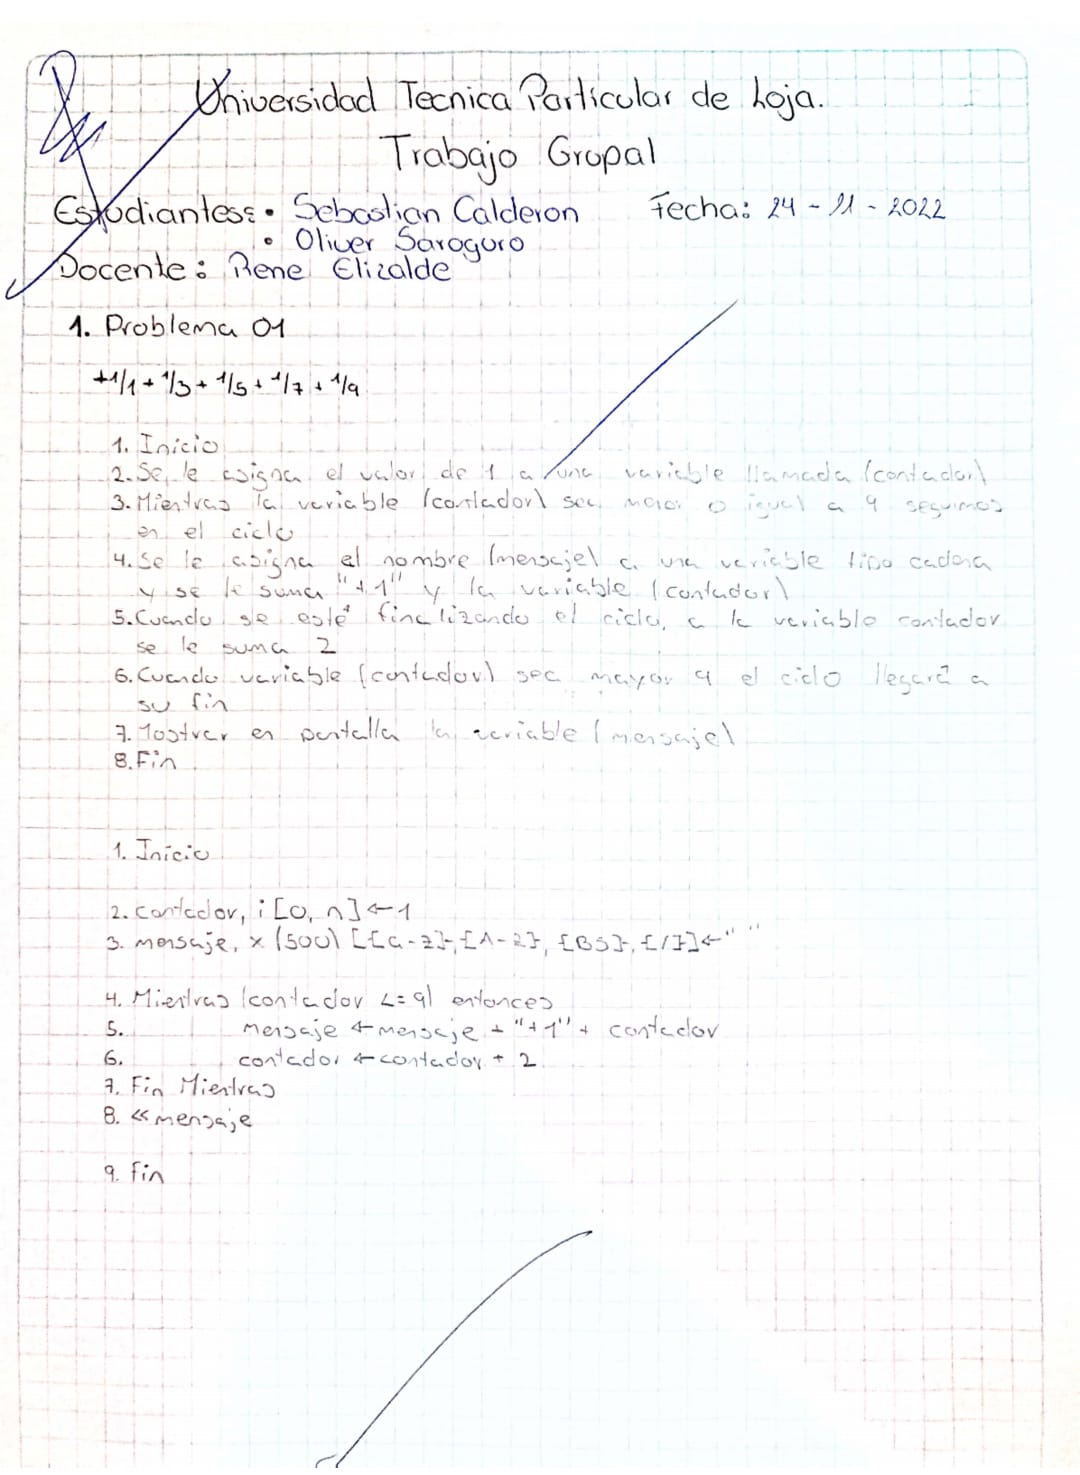 Universidad Tecnica Particular de Loja.
Trabajo Grupal
Estudiantes: • Sebastian Calderon Fecha: 24-11-2022
• Oliver Saroguro
Docente: Rene Elizalde
1. Problema 01
+1/1 + 1/3 + 1/5 + 1/7 + 1/9
1. Inicio
2. Se le asigna el valor de 1 a una variable llamada (contador)
3. Mientras la variable (contador) sea menor o igual a 9 seguimos
en el ciclo
4. Se le asigna el nombre (mensaje) a una variable tipo cadena
y se le suma "+1" y la variable (contador)
5. Cuando se esté finalizando el ciclo, a la variable contador
se le suma 2
6. Cuando variable (contador) sea mayor 9 el ciclo llegará a
su fin
7. Mostrar en pantalla la variable (mensaje)
8. Fin
1. Inicio
2. contador, i [0, n] ← 1
3. mensaje, x (500) [{a-z}, {A-Z}, {BS}, {/}] ← " "
4. Mientras (contador <= 9) entonces
5. mensaje ← mensaje + "+1" + contador
6. contador ← contador + 2
7. Fin Mientras
8. << mensaje
9. Fin